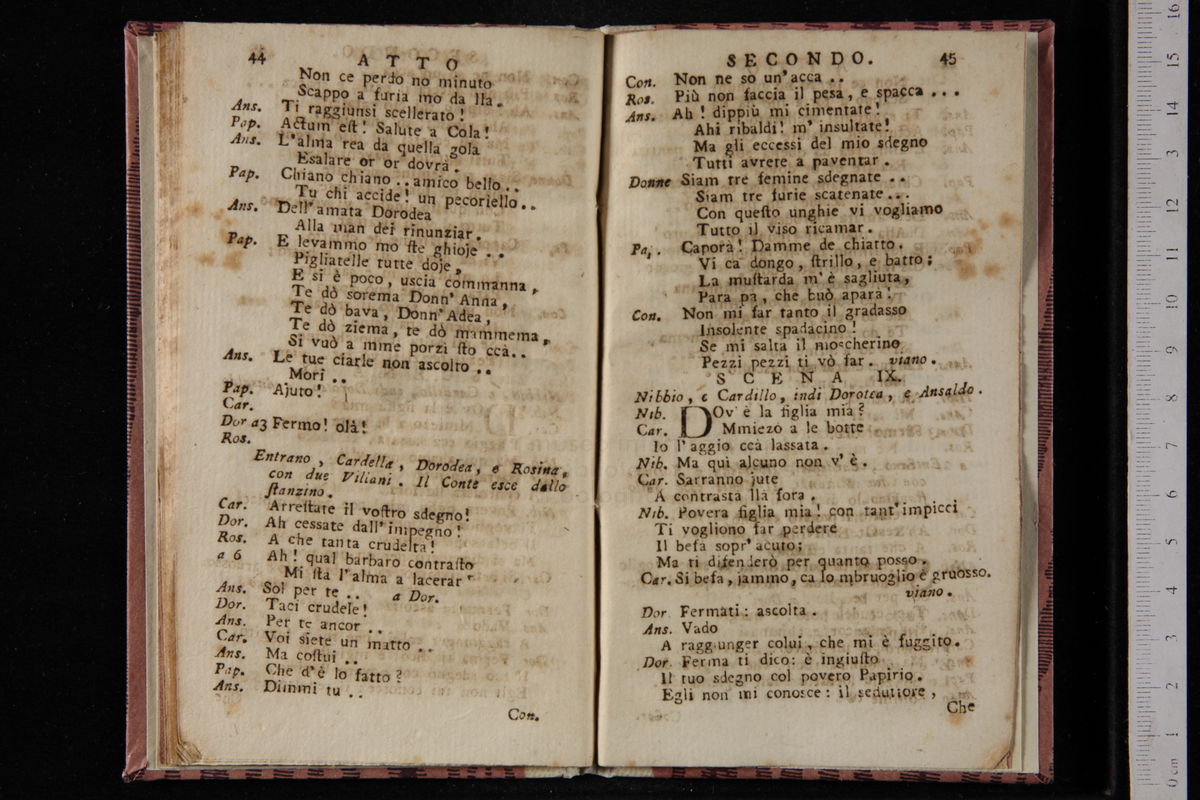 44 ATTO
Non ce perdo no minuto
Scappo a furia mo da lla.
Ans. Ti raggiunsi scellerato!
Pap. Actum eſt! Salute a Cola!
Ans. L'alma rea da quella gola
Esalare or or dovrà.
Pap. Chiano chiano .. amico bello..
Tu chi accide! un pecoriello..
Ans. Dell'amata Dorodea
Alla man dei rinunziar.
Pap. E levammo mo ſte ghioje ..
Pigliatelle tutte doje,
E si è poco, uscia commanna,
Te dò sorema Donn'Anna,
Te dò bava, Donn'Adea,
Te dò ziema, te dò mammema,
Si vuò a mme porzì ſto ccà..
Ans. Le tue ciarle non ascolto ..
Mori ..
Pap. Ajuto!
Car.
Dor a3 Fermo! olà!
Ros.
Entrano, Cardella, Dorodea, e Rosina,
con due Villani. Il Conte esce dallo
ſtanzino.
Car. Arreſtate il voſtro sdegno!
Dor. Ah cessate dall'impegno!
Ros. A che tanta crudeltà!
a 6 Ah! qual barbaro contraſto
Mi ſta l'alma a lacerar
Ans. Sol per te .. a Dor.
Dor. Taci crudele!
Ans. Per te ancor ..
Car. Voi siete un matto ..
Ans. Ma coſtui ..
Pap. Che d'è lo fatto?
Ans. Dimmi tu ..
Con.
SECONDO. 45
Con. Non ne so un'acca ..
Ros. Più non faccia il pesa, e spacca ...
Ans. Ah! dippiù mi cimentate!
Ahi ribaldi! m'insultate!
Ma gli eccessi del mio sdegno
Tutti avrete a paventar.
Donne Siam tre femine sdegnate ..
Siam tre furie scatenate...
Con queſto unghie vi vogliamo
Tutto il viso ricamar.
Pap. Caporà! Damme de chiatto.
Vi ca dongo, ſtrillo, e batto;
La muſtarda m'è sagliuta,
Para pa, che buò apara!
Con. Non mi far tanto il gradasso
Insolente spadacino!
Se mi salta il moscherino
Pezzi pezzi ti vò far. viano.
SCENA IX.
Nibbio, e Cardillo, indi Dorotea, e Ansaldo.
Nib. DOv'è la figlia mia?
Car. Mmiezo a le botte
Io l'aggio ccà lassata.
Nib. Ma qui alcuno non v'è.
Car. Sarranno jute
A contrastà llà fora.
Nib. Povera figlia mia! con tant'impicci
Ti vogliono far perdere
Il befà sopr'acuto;
Ma ti difenderò per quanto posso.
Car. Si befà, jammo, ca lo mbruoglio è gruosso.
viano.
Dor Fermati: ascolta.
Ans. Vado
A raggiunger colui, che mi è fuggito.
Dor Ferma ti dico: è ingiuſto
Il tuo sdegno col povero Papirio.
Egli non mi conosce: il seduttore,
Che